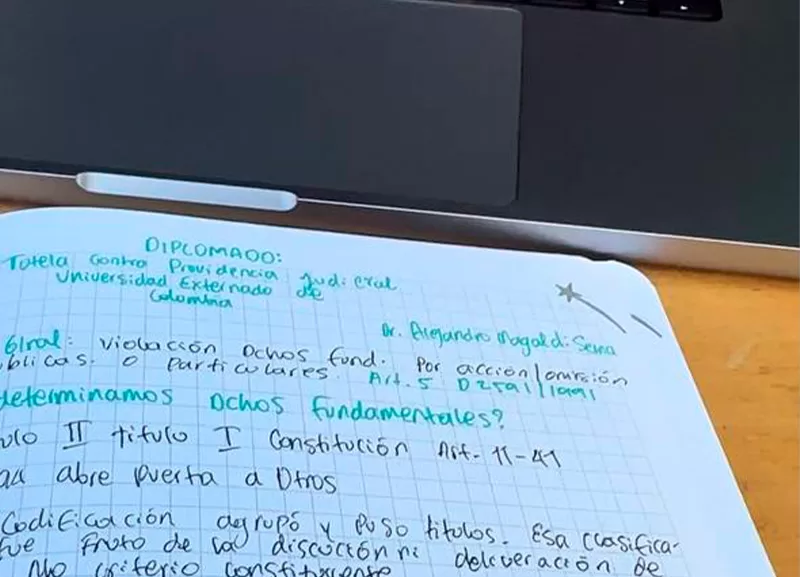 DIPLOMADO:
Tutela Contra Providencia Judicial
Universidad Externado de
Colombia
Dr. Alejandro Magaldi Serna
Gral: Violación Dchos fund. Por acción/omisión
blicas. o particulares. Art. 5 D2591/1991
determinamos Dchos fundamentales?
ulo II titulo I Constitución Art. 11-41
abre puerta a Otros
Codificación agrupó y puso titulos. Esa clasifica-
fue fruto de la ni deliveración de
No criterio constituyente